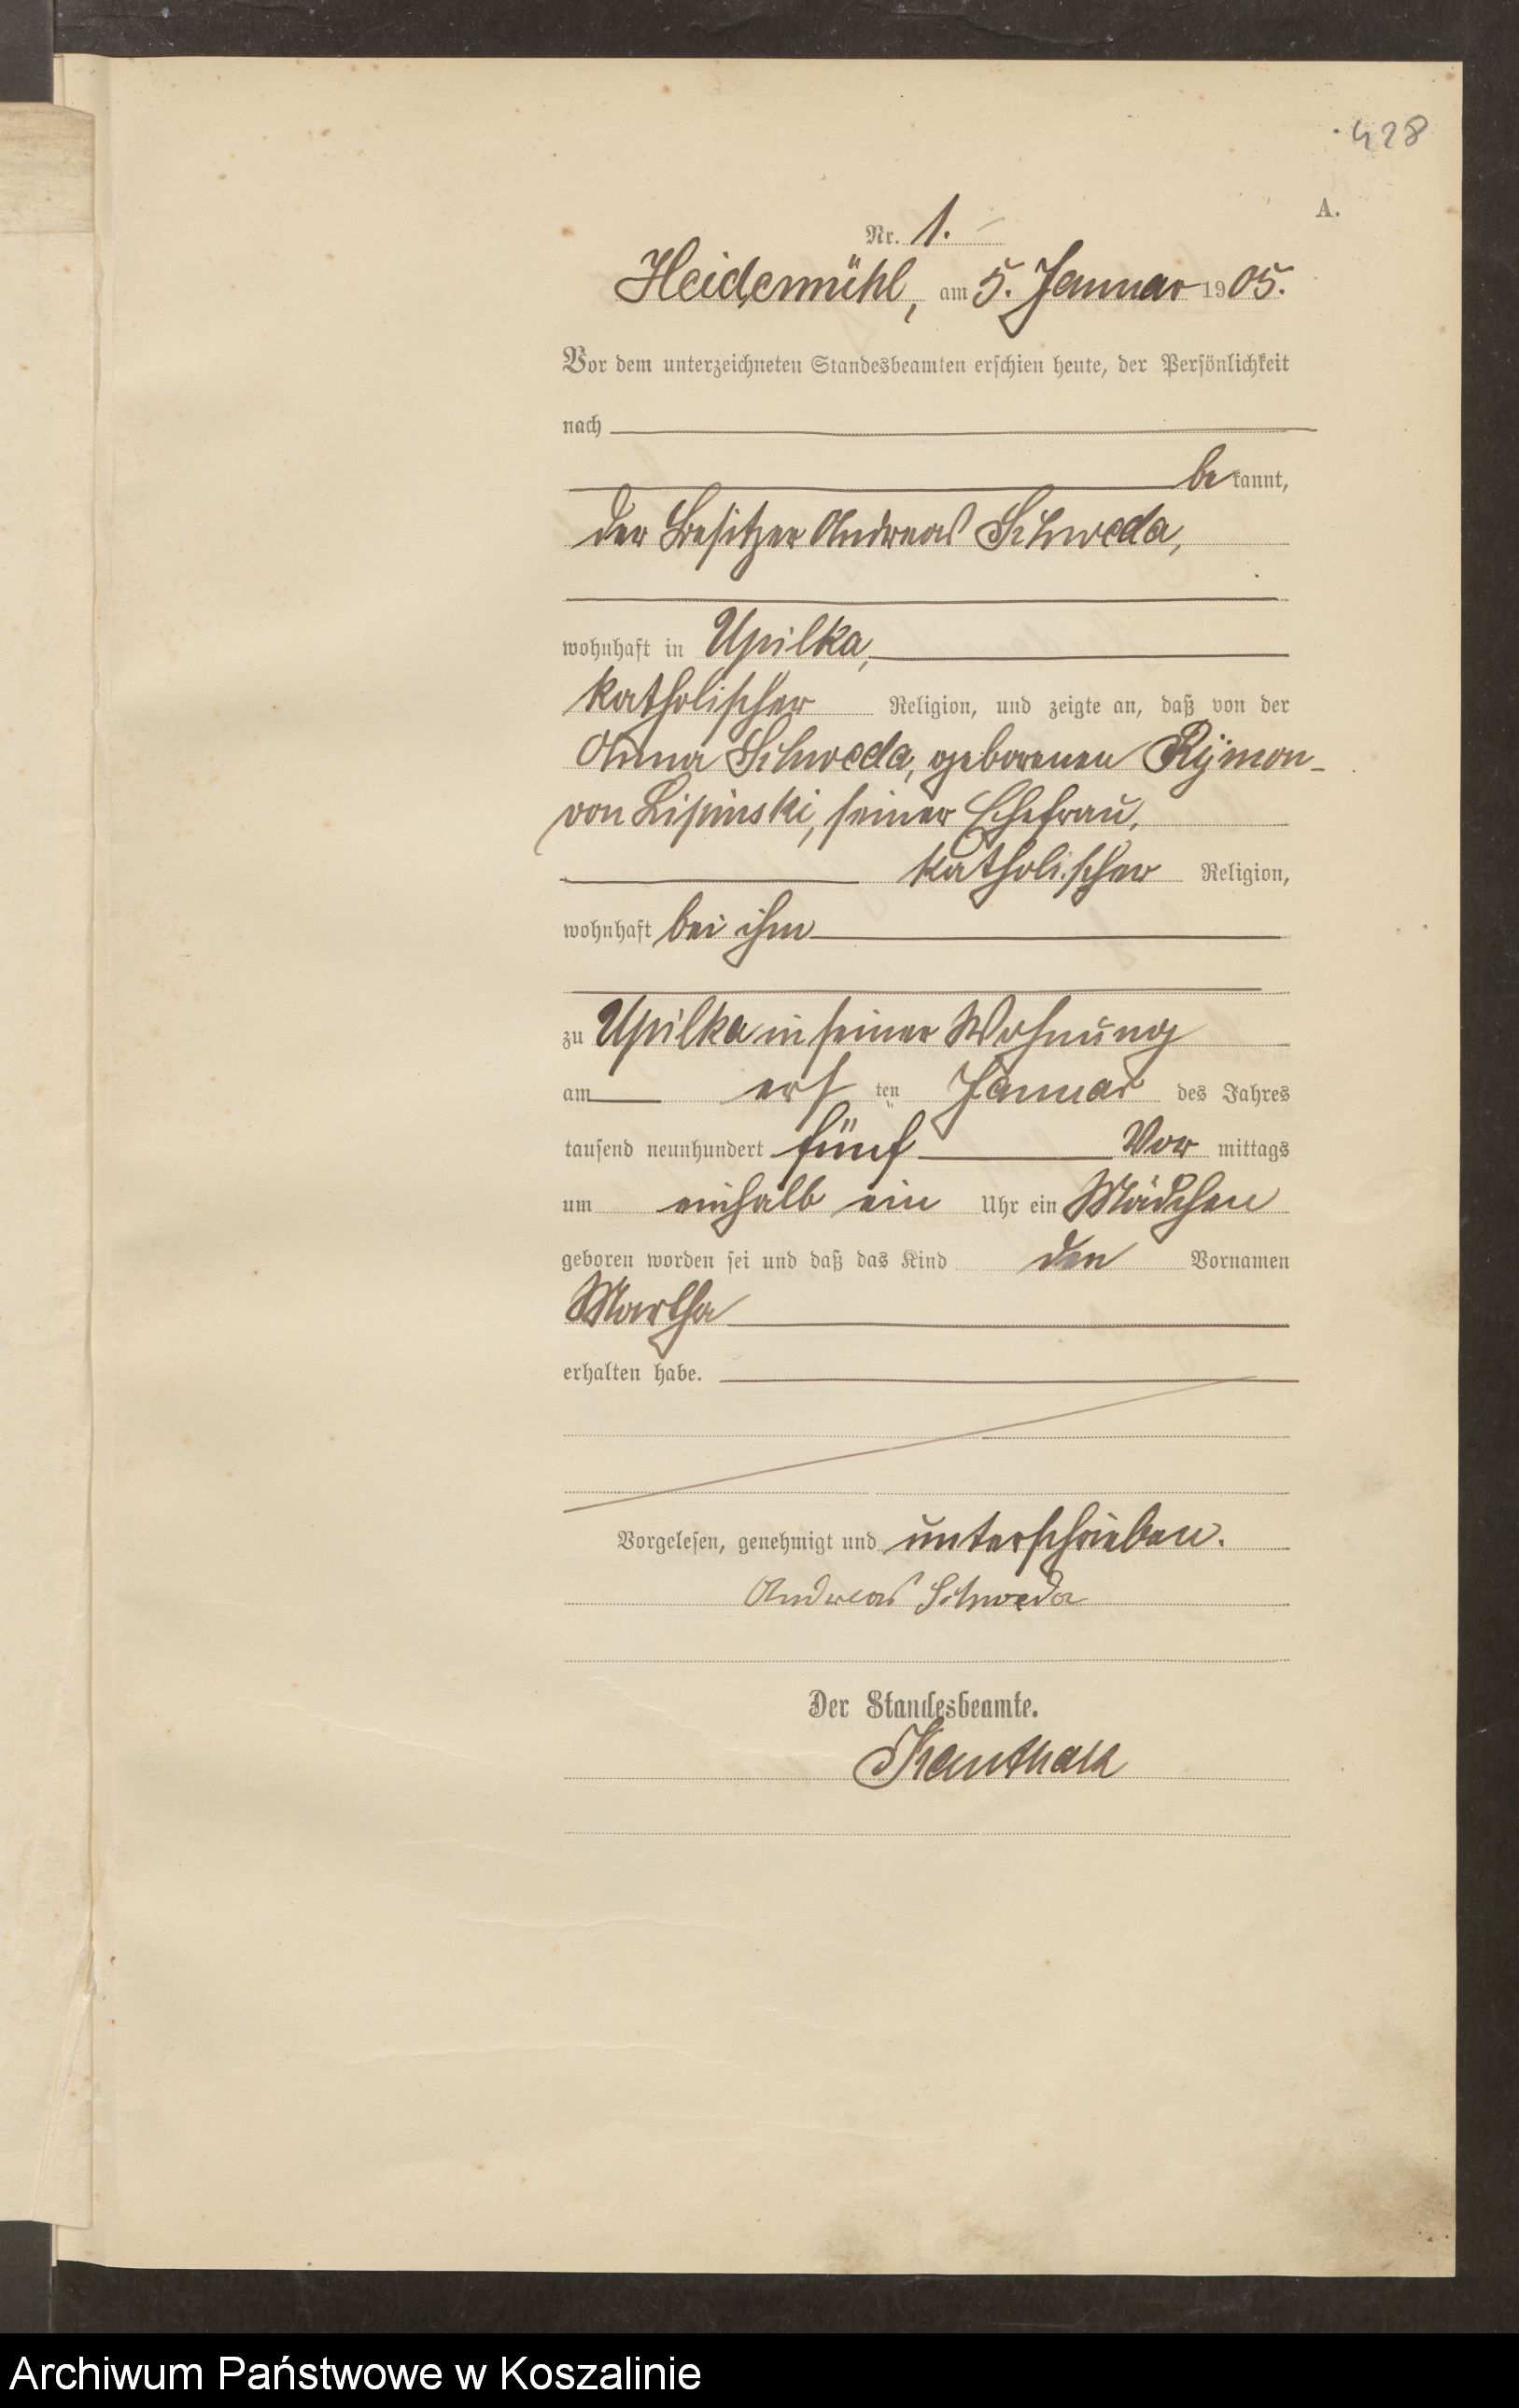 428
A.
Nr. 1.
Heidemühl, am 5. Januar 1905.
Vor dem unterzeichneten Standesbeamten erschien heute, der Persönlichkeit
nach
be kannt,
der Besitzer Andreas Schweda,
wohnhaft in Upilka,
katholischer Religion, und zeigte an, daß von der
Anna Schweda, geborenen Rÿmon-
von Lipinski, seiner Ehefrau,
katholischer Religion,
wohnhaft bei ihm
zu Upilka in seiner Wohnung
am erſ ten Januar des Jahres
tausend neunhundert fünf Vor mittags
um einhalb ein Uhr ein Mädchen
geboren worden sei und daß das Kind den Vornamen
Martha
erhalten habe.
Vorgelesen, genehmigt und unterschrieben.
Andreas Schweda
Der Standesbeamte.
Archiwum Państwowe w Koszalinie